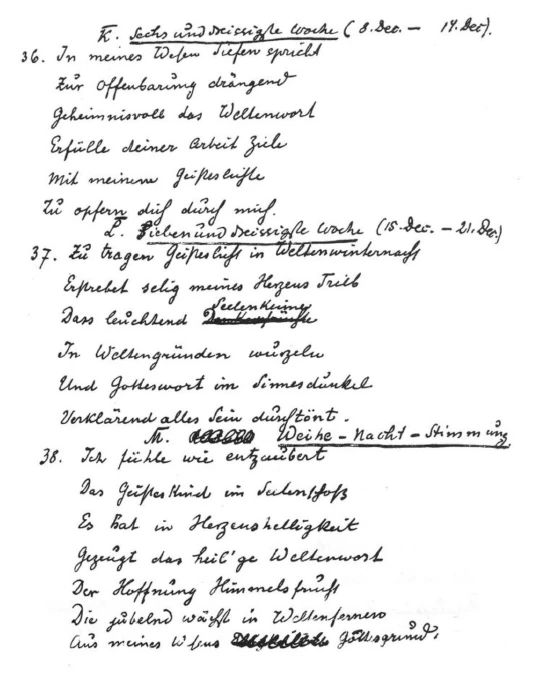 K. Sechs und dreissigste Woche (8. Dec. — 14. Dec).
36. In meines Wesens Tiefen spricht
Zur Offenbarung drängend
Geheimnisvoll das Weltenwort
Erfülle deiner Arbeit Ziele
Mit meinem Geisteslichte
Zu opfern dich durch mich.
L. Sieben und dreissigste Woche (15. Dec. — 21. Dec)
37. Zu tragen Geisteslicht in Weltenwinternacht
Erstrebet selig meines Herzens Trieb
Dass leuchtend Seelenkeime
In Weltengründen wurzeln
Und Gotteswort im Sinnesdunkel
Verklärend alles Sein durchtönt.
M. Weihe-Nacht-Stimmung
38. Ich fühle wie entzaubert
Das Geisteskind im Seelenschoß
Es hat in Herzenshelligkeit
Gezeugt das heil'ge Weltenwort
Der Hoffnung Himmelsfrucht
Die jubelnd wächst in Weltenfernen
Aus meines Wesens Gottesgrund.